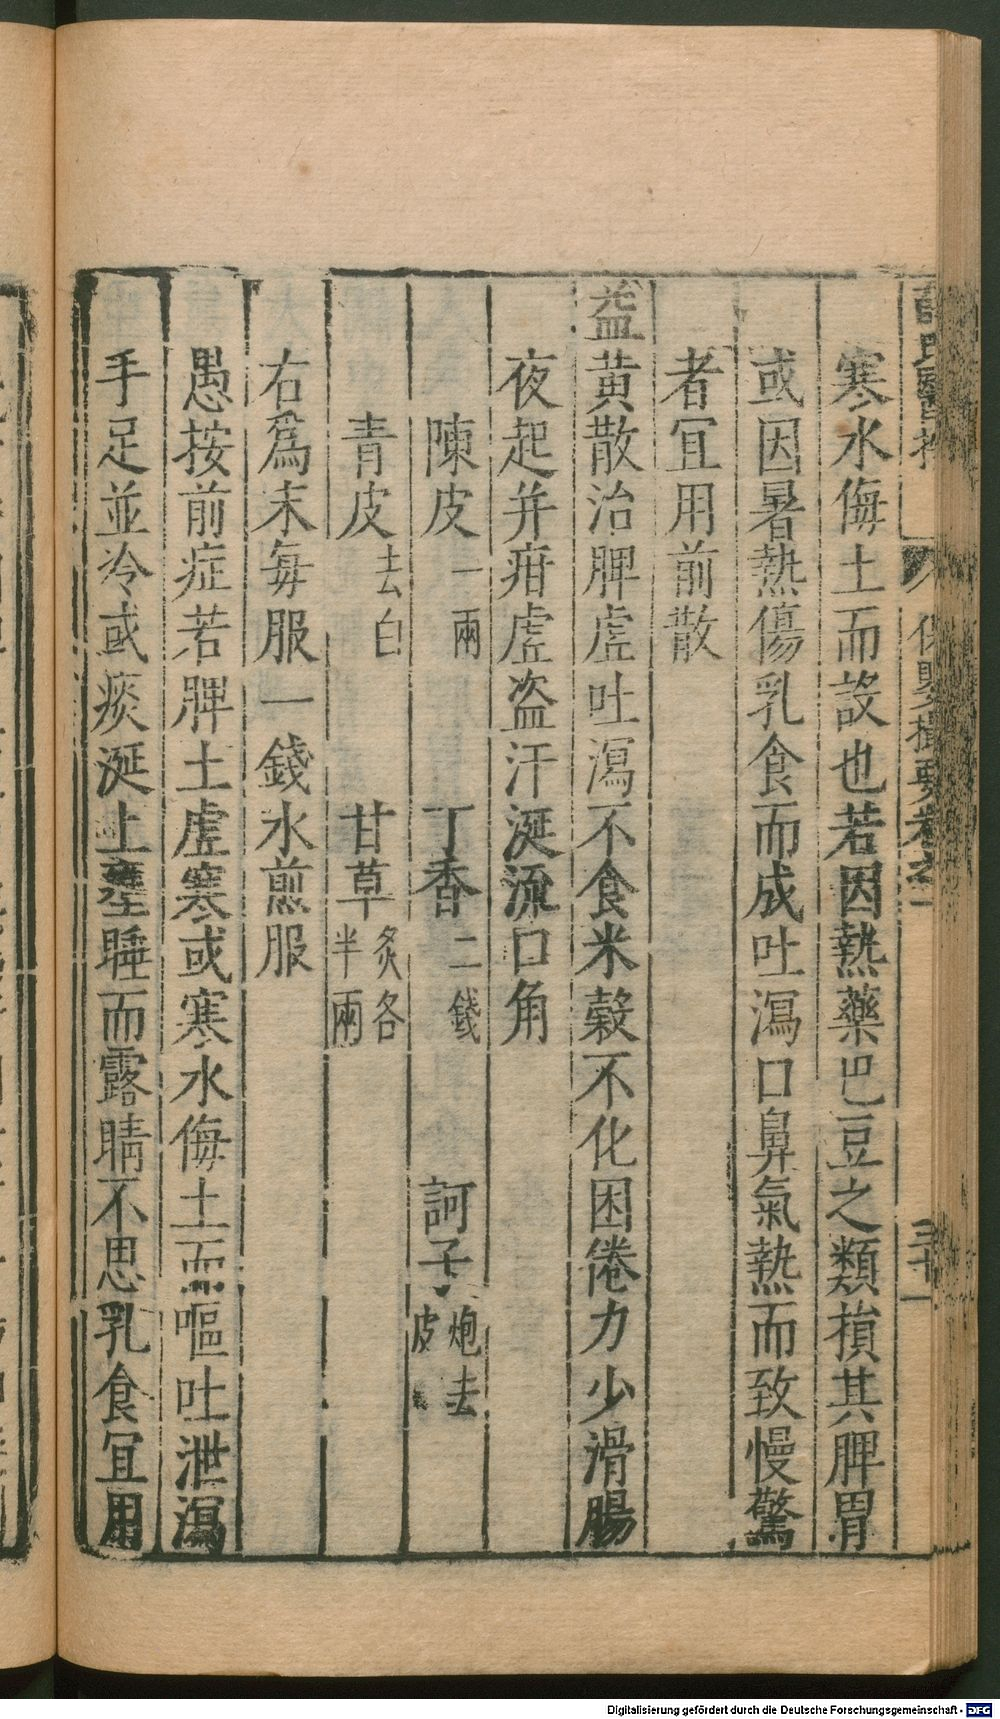 薛氏醫按 保嬰撮要卷之一 三十一
寒水侮土而設也若因熱藥巴豆之類損其脾胃
或因暑熱傷乳食而成吐瀉口鼻氣熱而致慢驚
者宜用前散
益黃散治脾虛吐瀉不食米穀不化困倦力少滑腸
夜起并疳虛盜汗涎流口角
陳皮一兩 丁香二錢 訶子炮去皮
青皮去白 甘草炙各半兩
右爲末每服一錢水煎服
愚按前症若脾土虛寒或寒水侮土而嘔吐泄瀉
手足並冷或痰涎上壅睡而露睛不思乳食宜用
Digitalisierung gefördert durch die Deutsche Forschungsgemeinschaft - DFG